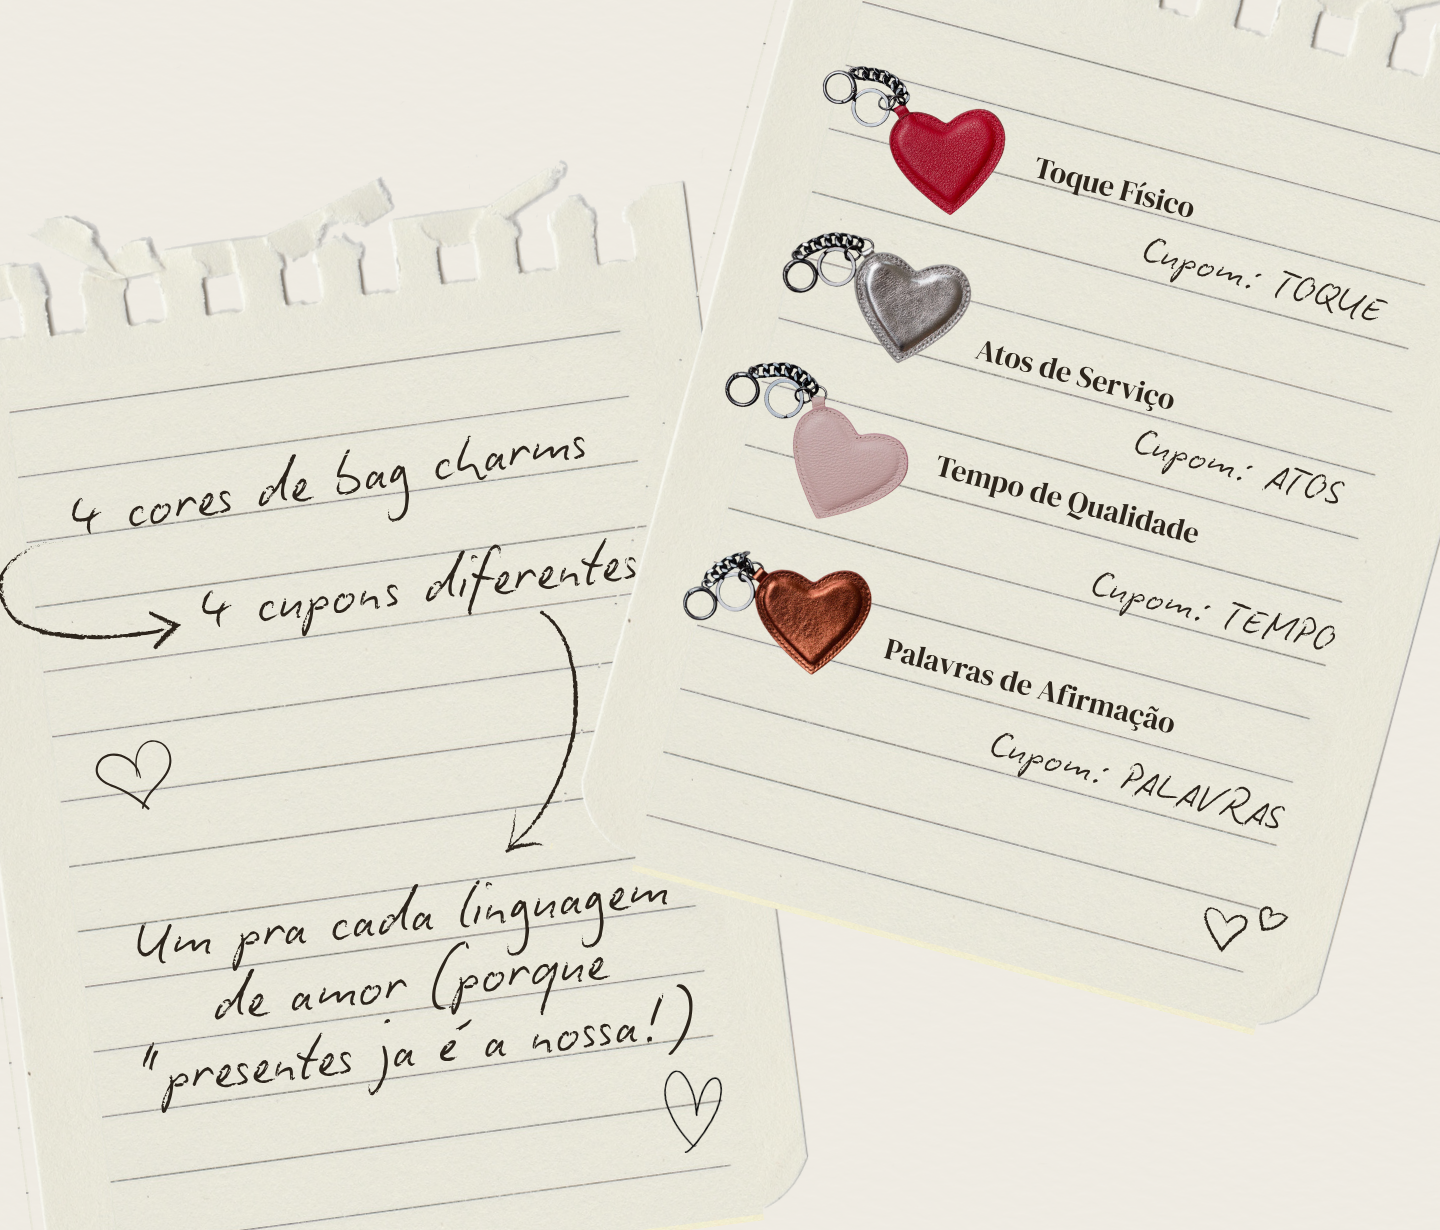 4 cores de bag charms
4 cupons diferentes
Um pra cada linguagem
de amor (porque
"presentes ja é a nossa!)
Toque Físico
Cupom: TOQUE
Atos de Serviço
Cupom: ATOS
Tempo de Qualidade
Cupom: TEMPO
Palavras de Afirmação
Cupom: PALAVRAS